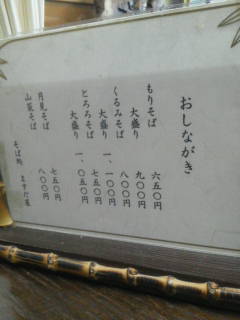 おしながき
もりそば 六五〇円
大盛り 九〇〇円
くるみそば 八〇〇円
大盛り 一、一〇〇円
とろろそば 七五〇円
大盛り 一、〇五〇円
月見そば 七五〇円
山菜そば 八〇〇円
そば処 ますだ屋